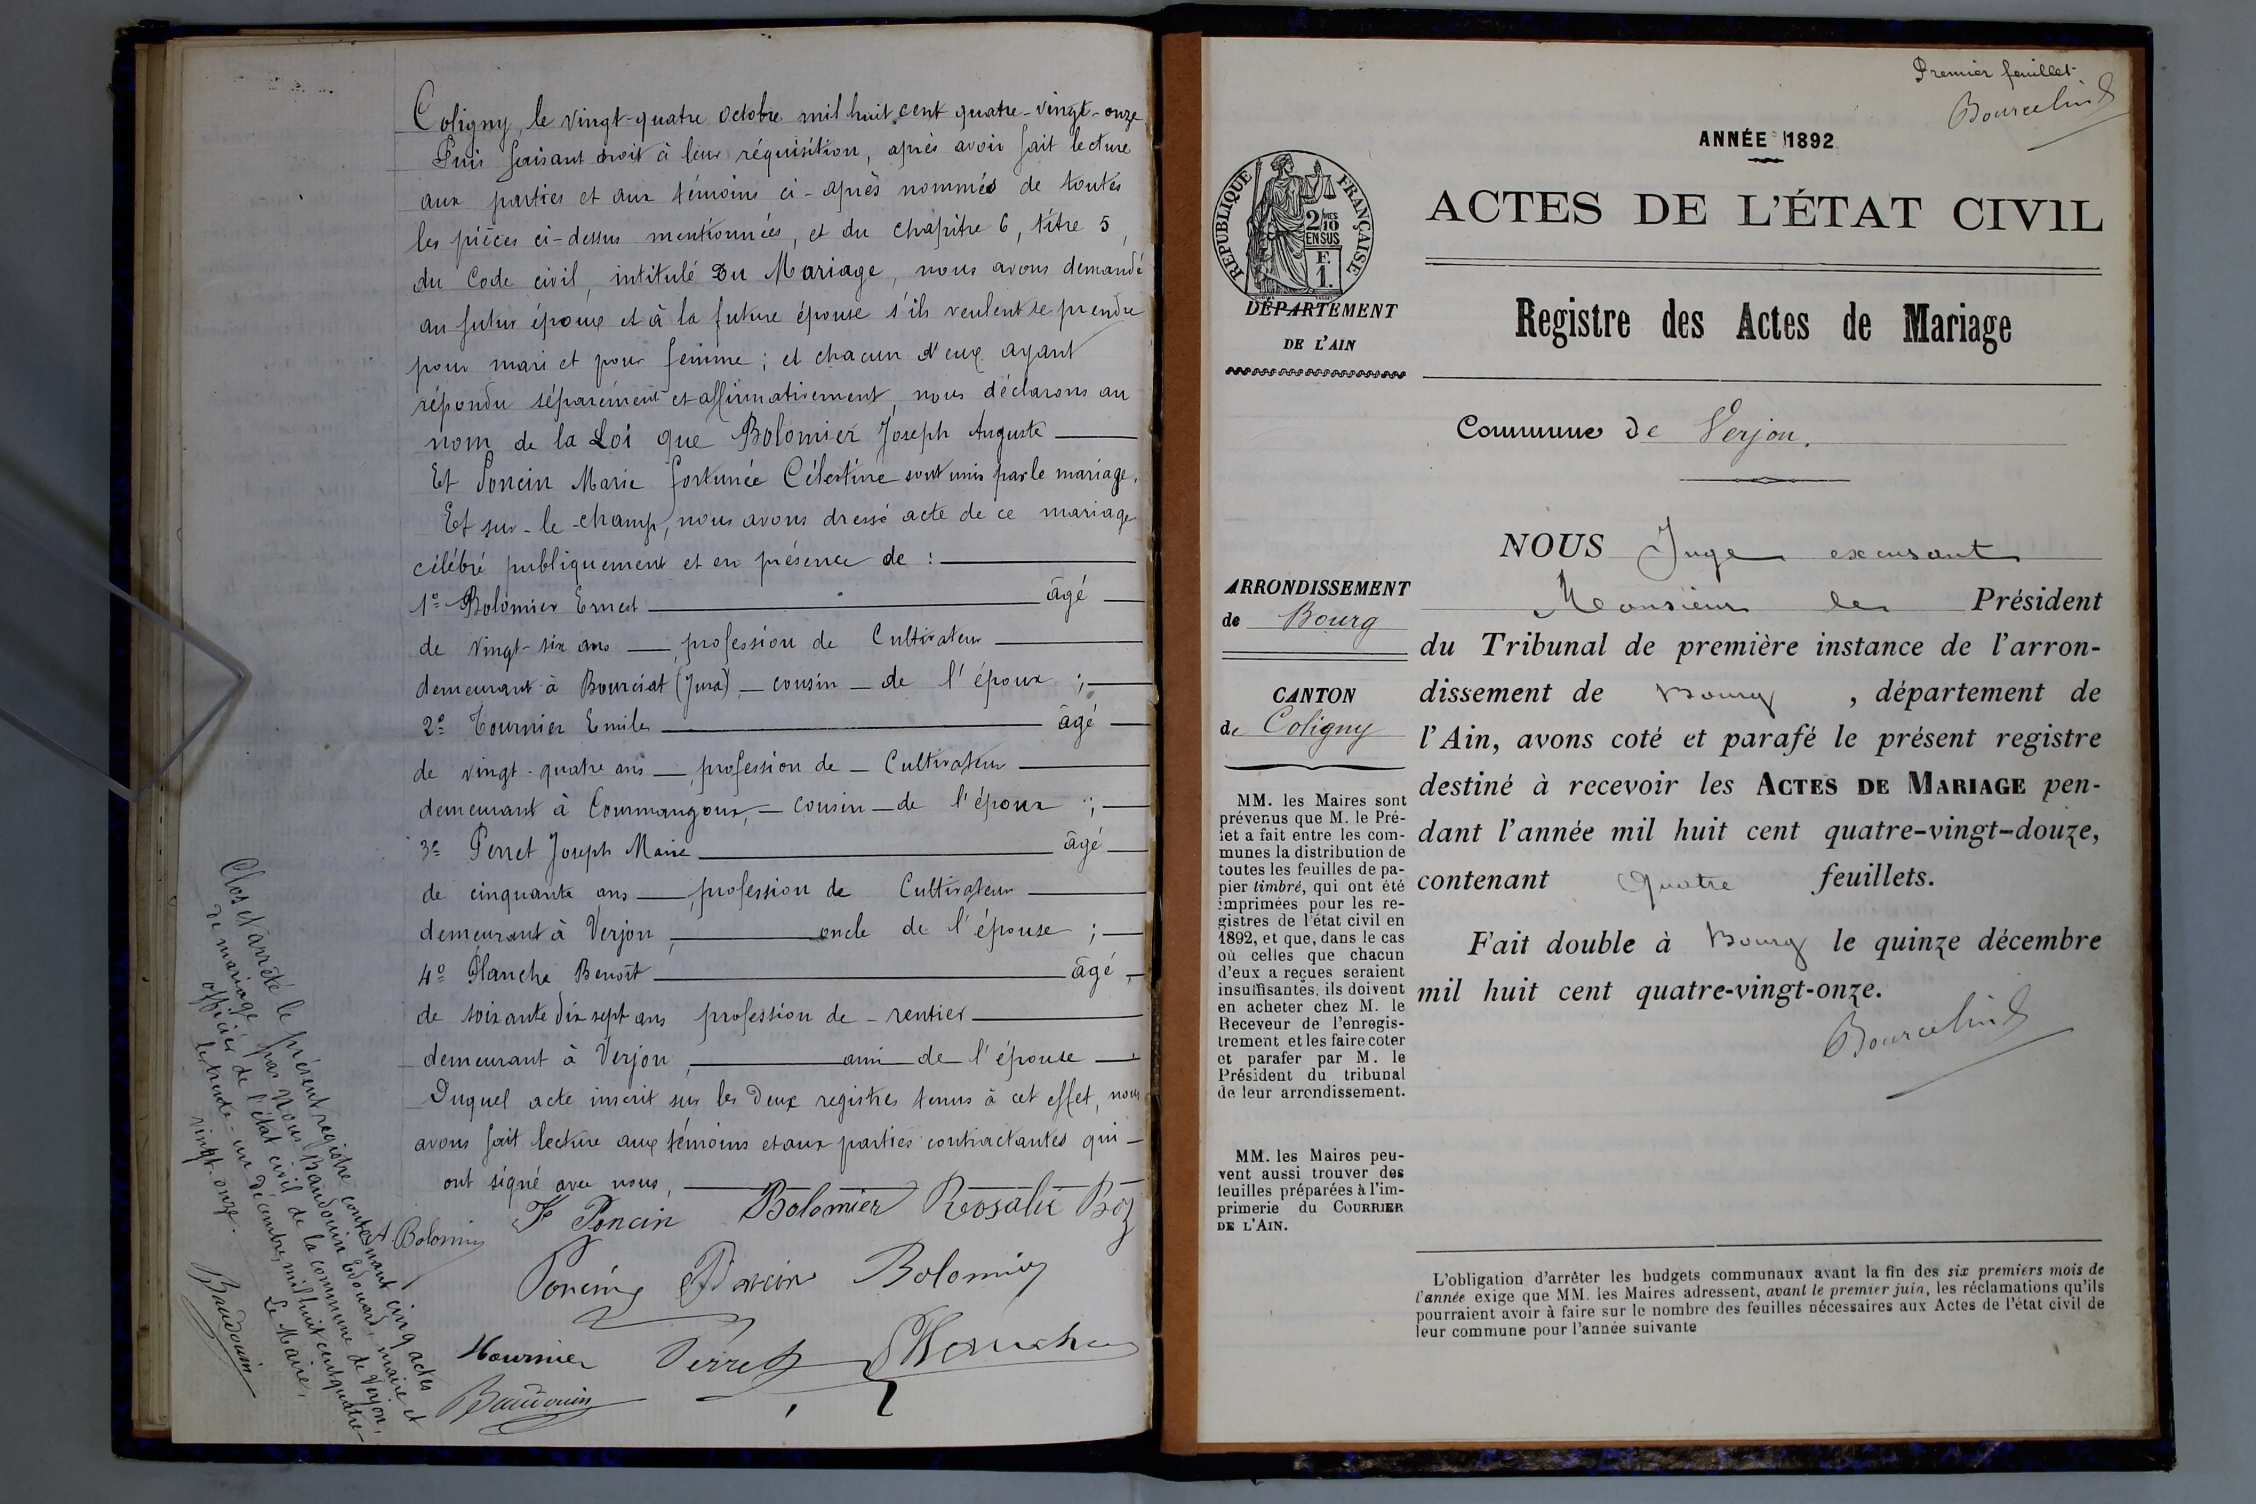 Coligny, le vingt-quatre octobre mil huit cent quatre-vingt-onze
Puis faisant droit à leur réquisition, après avoir fait lecture
aux parties et aux témoins ci-après nommés de toutes
les pièces ci-dessus mentionnées, et du chapitre 6, titre 5,
du Code civil, intitulé Du Mariage, nous avons demandé
au futur époux et à la future épouse s'ils veulent se prendre
pour mari et pour femme ; et chacun d'eux ayant
répondu séparément et affirmativement, nous déclarons au
nom de la Loi que Bolomier Joseph Auguste
Et Poncin Marie Fortunée Célestine sont unis par le mariage.
Et sur-le-champ, nous avons dressé acte de ce mariage
célébré publiquement et en présence de :
1º Bolomier Ernest âgé
de vingt-six ans, profession de Cultivateur
demeurant à Bourciat (Jura), cousin de l'époux ;
2º Tournier Emile âgé
de vingt-quatre ans, profession de Cultivateur
demeurant à Courmangoux, cousin de l'époux ;
3º Perret Joseph Marie âgé
de cinquante ans, profession de Cultivateur
demeurant à Verjon, oncle de l'épouse ;
4º Planche Benoît âgé
de soixante dix sept ans profession de rentier
demeurant à Verjon, ami de l'épouse
Duquel acte inscrit sur les deux registres tenus à cet effet, nous
avons fait lecture aux témoins et aux parties contractantes qui
ont signé avec nous,
A Bolomier F Poncin Bolomier Rosalie Boz
Poncin Poncin Bolomier
Tournier Perret Planche
Baudouin
Clos et arrêté le présent registre contenant cinq actes
de mariage par nous Baudouin Edouard, maire et
officier de l'état civil de la commune de Verjon,
le trente-un décembre mil huit cent quatre-
vingt-onze.
Le Maire,
Baudouin
Premier feuillet.
Bourcelin
ANNÉE 1892
ACTES DE L'ÉTAT CIVIL
RÉPUBLIQUE FRANÇAISE
2/10 EN SUS
F. 1.
DÉPARTEMENT
DE L'AIN
Registre des Actes de Mariage
Commune de Verjon.
ARRONDISSEMENT
de Bourg
CANTON
de Coligny
MM. les Maires sont
prévenus que M. le Pré-
fet a fait entre les com-
munes la distribution de
toutes les feuilles de pa-
pier timbré, qui ont été
imprimées pour les re-
gistres de l'état civil en
1892, et que, dans le cas
où celles que chacun
d'eux a reçues seraient
insuffisantes, ils doivent
en acheter chez M. le
Receveur de l'enregis-
trement et les faire coter
et parafer par M. le
Président du tribunal
de leur arrondissement.
MM. les Maires peu-
vent aussi trouver des
feuilles préparées à l'im-
primerie du COURRIER
DE L'AIN.
NOUS Juge excusant
Monsieur le Président
du Tribunal de première instance de l'arron-
dissement de Bourg, département de
l'Ain, avons coté et parafé le présent registre
destiné à recevoir les ACTES DE MARIAGE pen-
dant l'année mil huit cent quatre-vingt-douze,
contenant quatre feuillets.
Fait double à Bourg le quinze décembre
mil huit cent quatre-vingt-onze.
Bourcelin
L'obligation d'arrêter les budgets communaux avant la fin des six premiers mois de
l'année exige que MM. les Maires adressent, avant le premier juin, les réclamations qu'ils
pourraient avoir à faire sur le nombre des feuilles nécessaires aux Actes de l'état civil de
leur commune pour l'année suivante